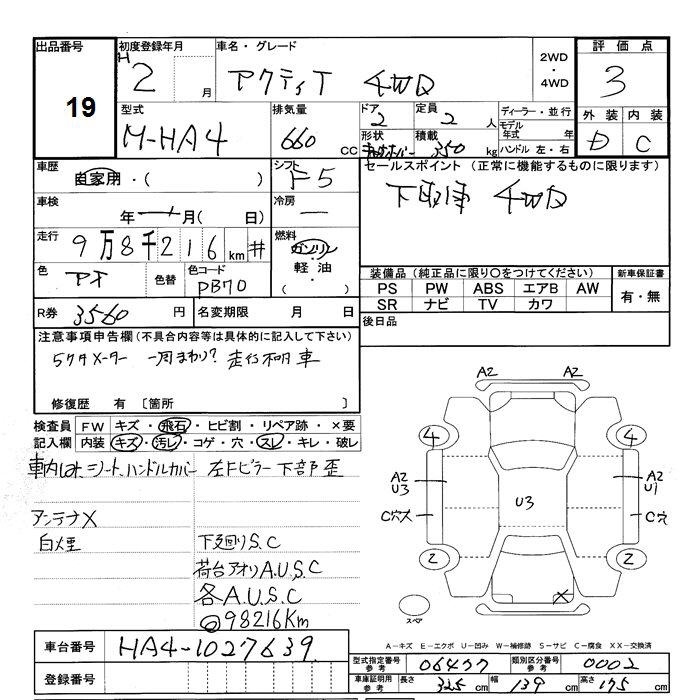 出品番号 19
初度登録年月 H 2 月
車名・グレード アクティT 4WD
2WD・4WD
評価点 3
型式 M-HA4
排気量 660 CC
ドア 2
定員 2 人
形状
積載 350 kg
ディーラー・並行
モデル年式 年
ハンドル 左・右
外装 D
内装 C
車歴 自家用・( )
シフト F5
セールスポイント (正常に機能するものに限ります)
下取車 4WD
車検 年 ー 月( 日)
冷房 ー
走行 9万8千216km #
燃料 ガソリン・軽油・( )
色 アオ
色替
色コード PB70
装備品(純正品に限り○をつけてください)
PS PW ABS エアB AW
SR ナビ TV カワ
新車保証書 有・無
R券 3560 円
名変期限 月 日
後日品
注意事項申告欄(不具合内容等は具体的に記入して下さい)
5ケタメーター 一周まわり? 走行不明車
修復歴 有 〔箇所 〕
検査員記入欄
FW キズ・飛石・ヒビ割・リペア跡・×要
内装 キズ・汚レ・コゲ・穴・スレ・キレ・破レ
車内 シート、ハンドルカバー 左Fピラー下部歪
アンテナX
白煙 下廻りS.C
荷台アオリA.U.S.C
各A.U.S.C
◎98216Km
A2 A2
4 4
A2 U3
U3
A2 U1
C穴大
C穴
2 2
X
スペア
A-キズ E-エクボ U-凹み W-補修跡 S-サビ C-腐食 XX-交換済
車台番号 HA4-1027639
登録番号
型式指定番号 参考 06477
類別区分番号 参考 0002
車庫証明用 参考 長さ 325 cm 幅 139 cm 高さ 175 cm